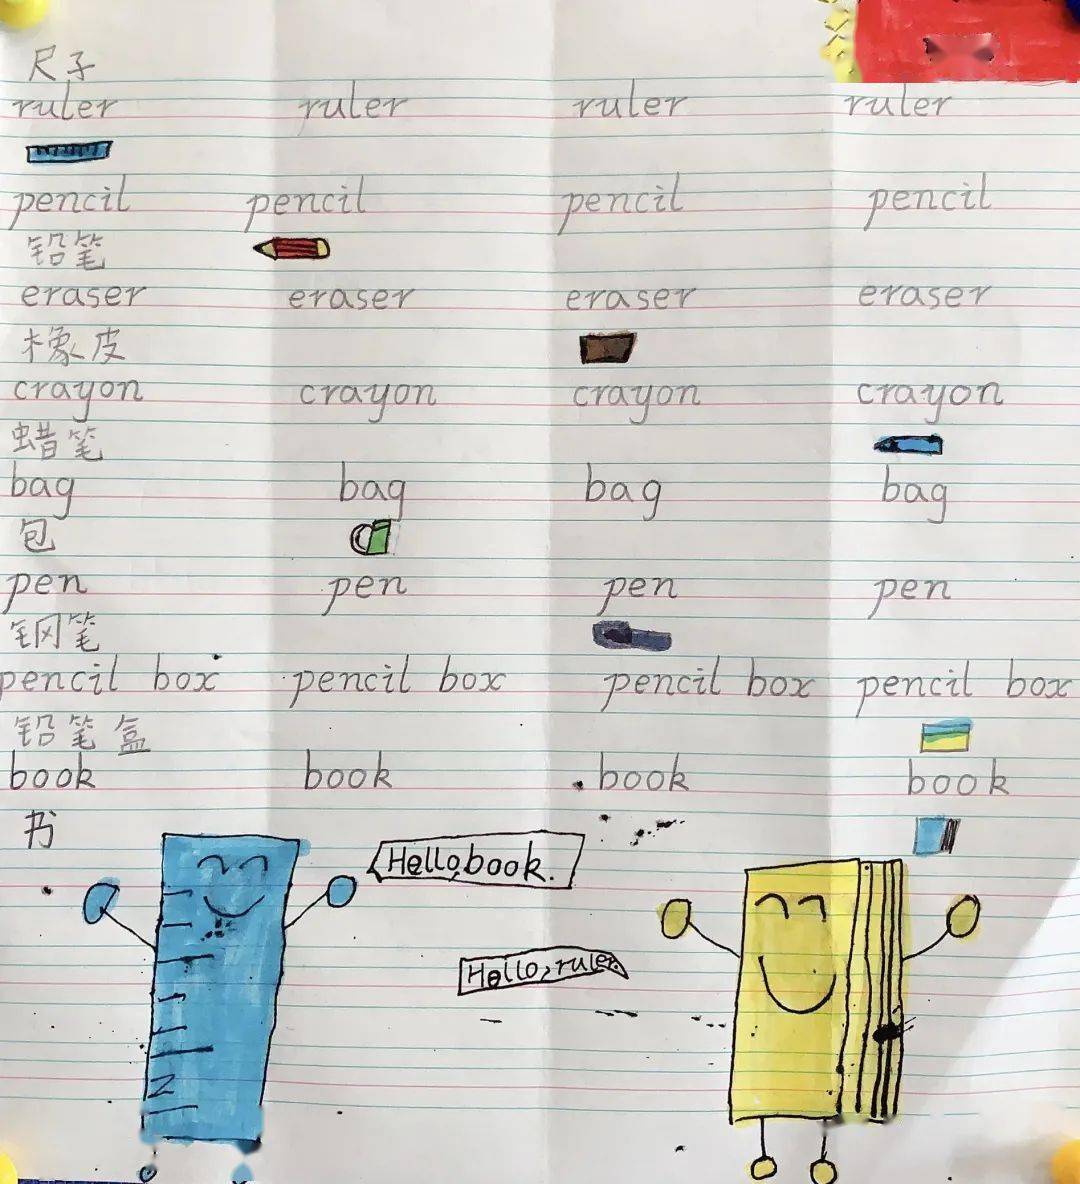 尺子
ruler ruler ruler ruler
pencil pencil pencil pencil
铅笔
eraser eraser eraser eraser
橡皮
crayon crayon crayon crayon
蜡笔
bag bag bag bag
包
pen pen pen pen
钢笔
pencil box pencil box pencil box pencil box
铅笔盒
book book book book
书
Hello,book.
Hello,ruler.